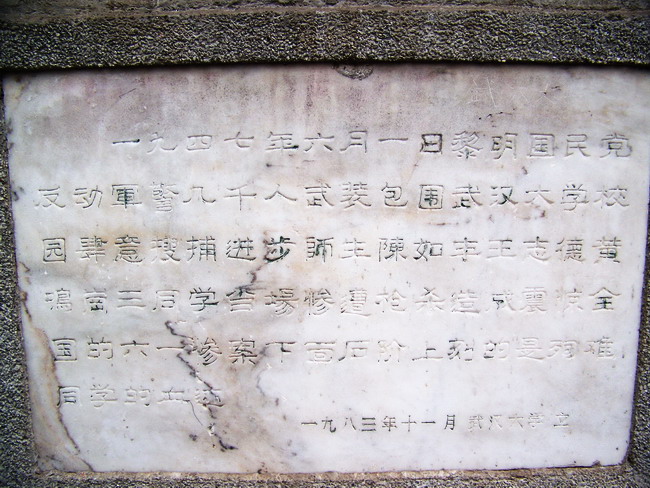 一九四七年六月一日黎明国民党
反动軍警几千人武装包围武汉大学校
园肆意搜捕进步师生陳如丰王志德黄
鳴崗三同学当場惨遭枪杀造成震惊全
国的六一惨案下面石阶上刻的是殉难
同学的血迹
一九八三年十一月 武汉大学 立